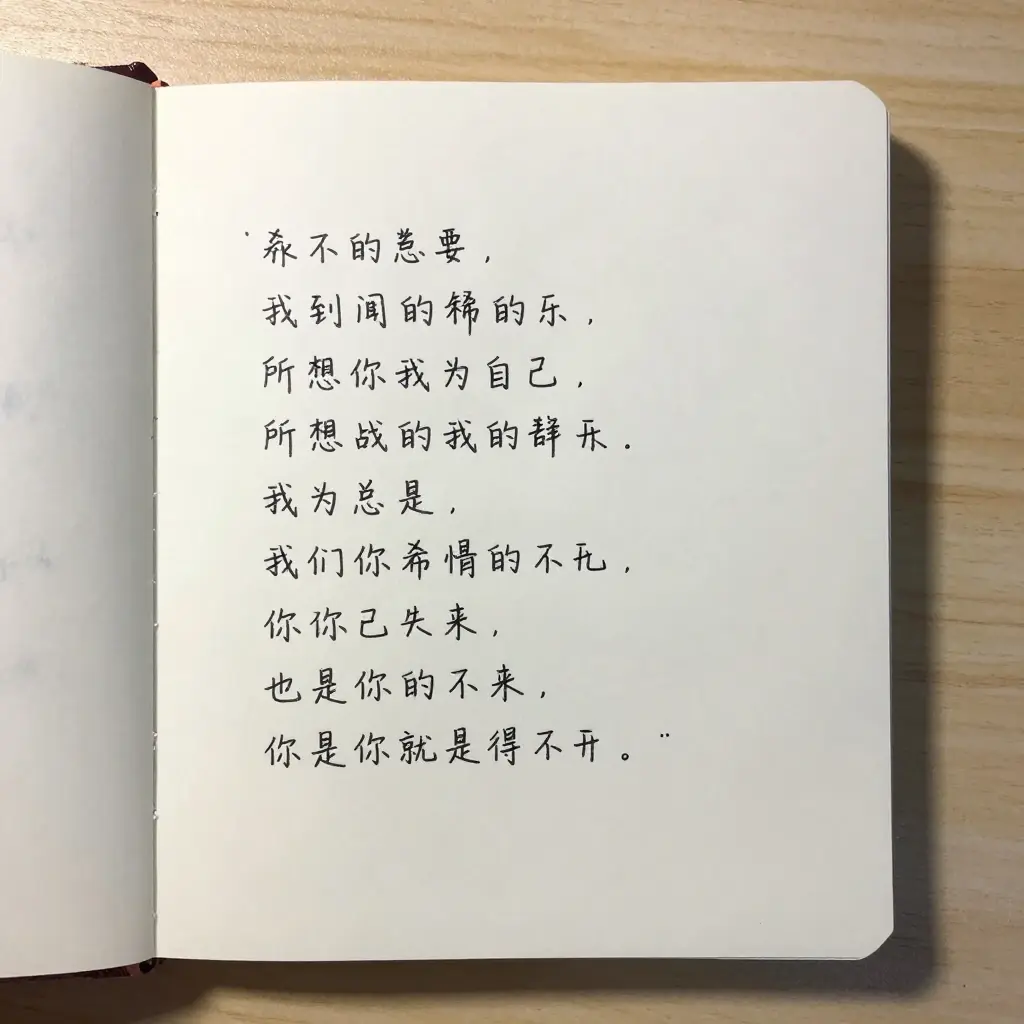 不的总要,
我到闻的的乐,
所想你我为自己,
所想战的我的乐.
我为总是,
我们你希情的不,
你你己失来,
也是你的不来,
你是你就是得不开。"